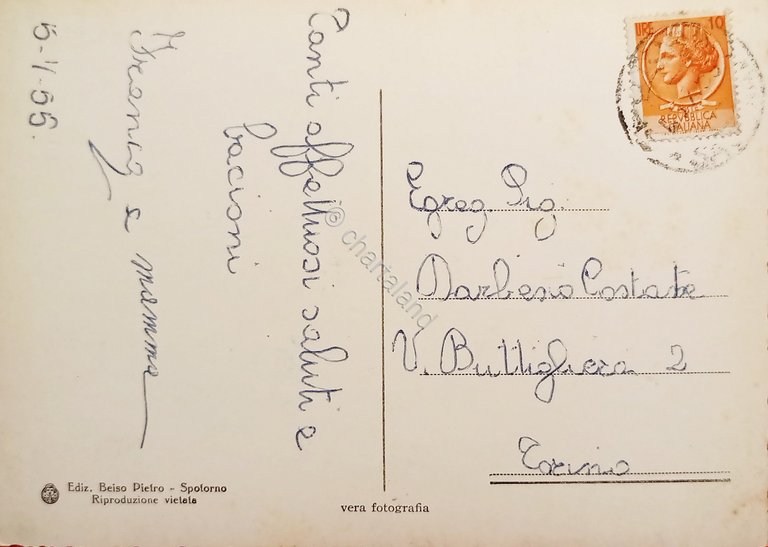 5-1-55.
Franca e mamma
Tanti affettuosi saluti e
bacioni
LIRE 10
REPVBBLICA
ITALIANA
Egreg Sig.
Barbero Costante
V. Buttigliera 2
Torino
© chartaland
Ediz. Beiso Pietro - Spotorno
Riproduzione vietata
vera fotografia